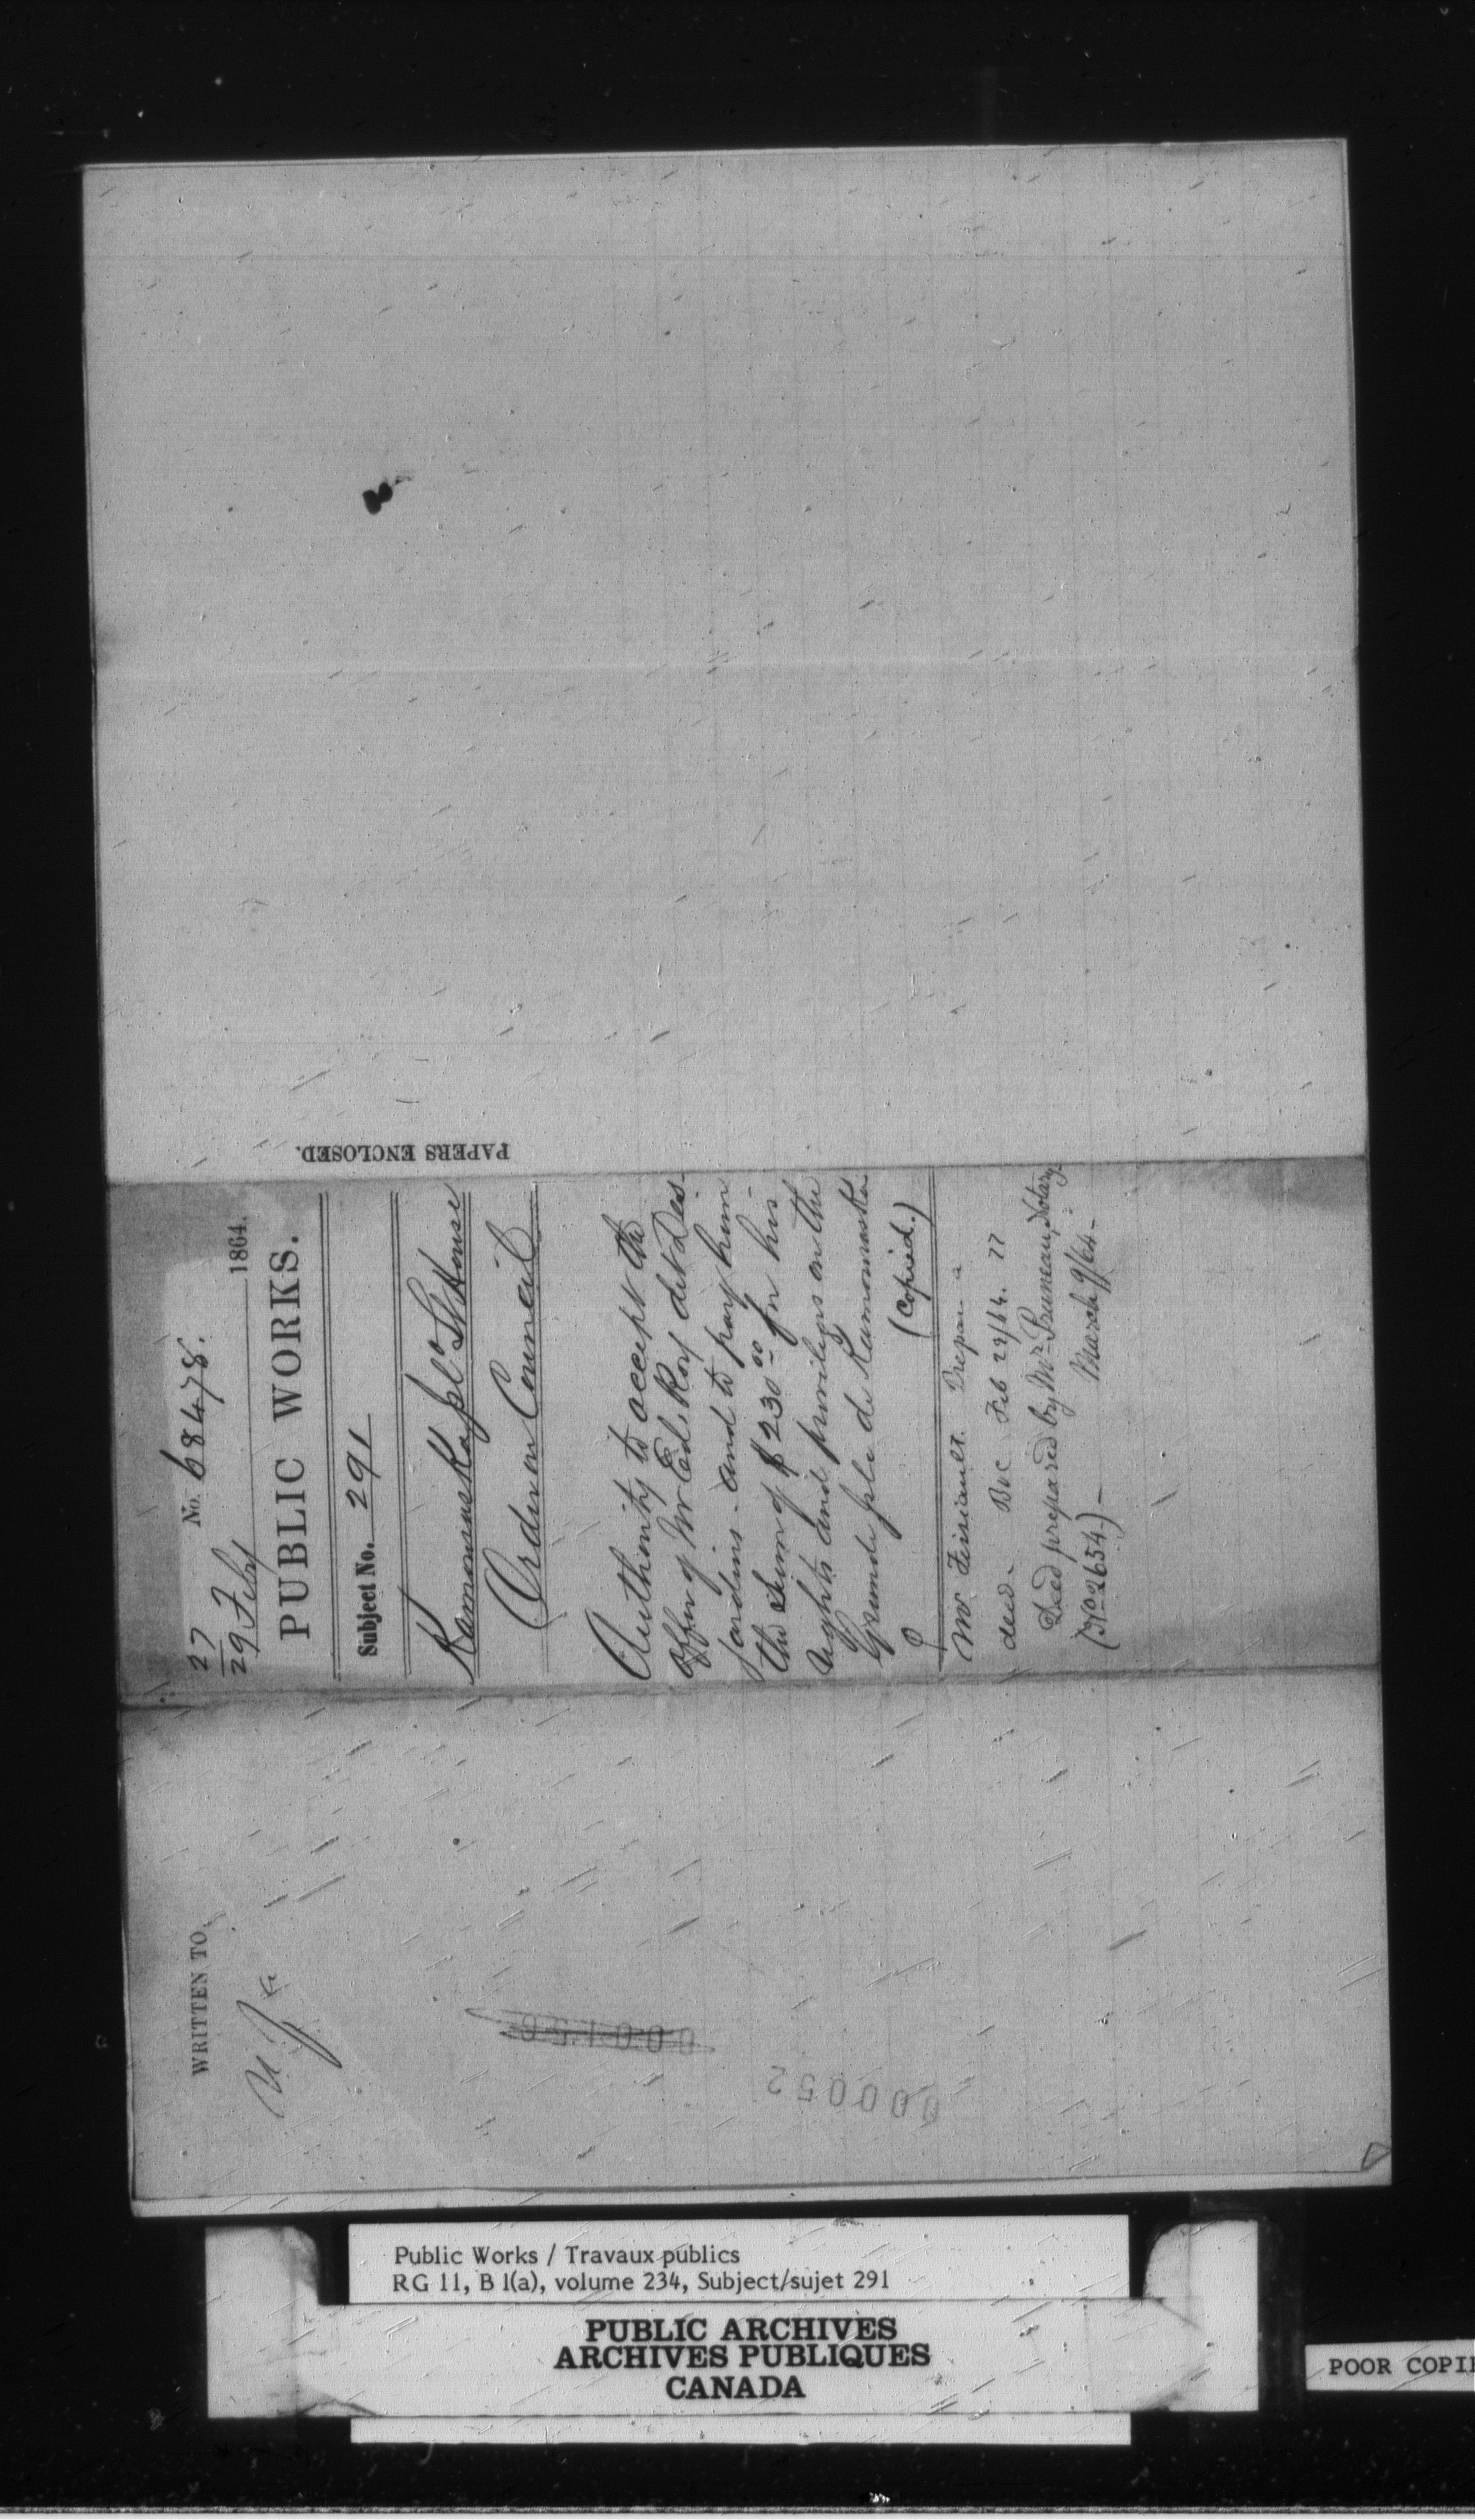 27 No. 68478.
29 Feby 1864.
PUBLIC WORKS.
Subject No. 291
Kamouraska Isld Lt House
Order in Council
Authority to accept the
offer of Mr Ed. le Roy dit Des-
jardins - and to pay him
the Sum of $230.00 for his
rights and privileges on the
Grande Isle de Kamouraska
(Copied.)
Mr
deed. Feb 29/64. 77
Deed prepared by Mr Pruneau, Notary
(No 2654) - March 9/64 -
PAPERS ENCLOSED.
WRITTEN TO
000156
000052
Public Works / Travaux publics
RG 11, B 1(a), volume 234, Subject/sujet 291
PUBLIC ARCHIVES
ARCHIVES PUBLIQUES
CANADA
POOR COPIE